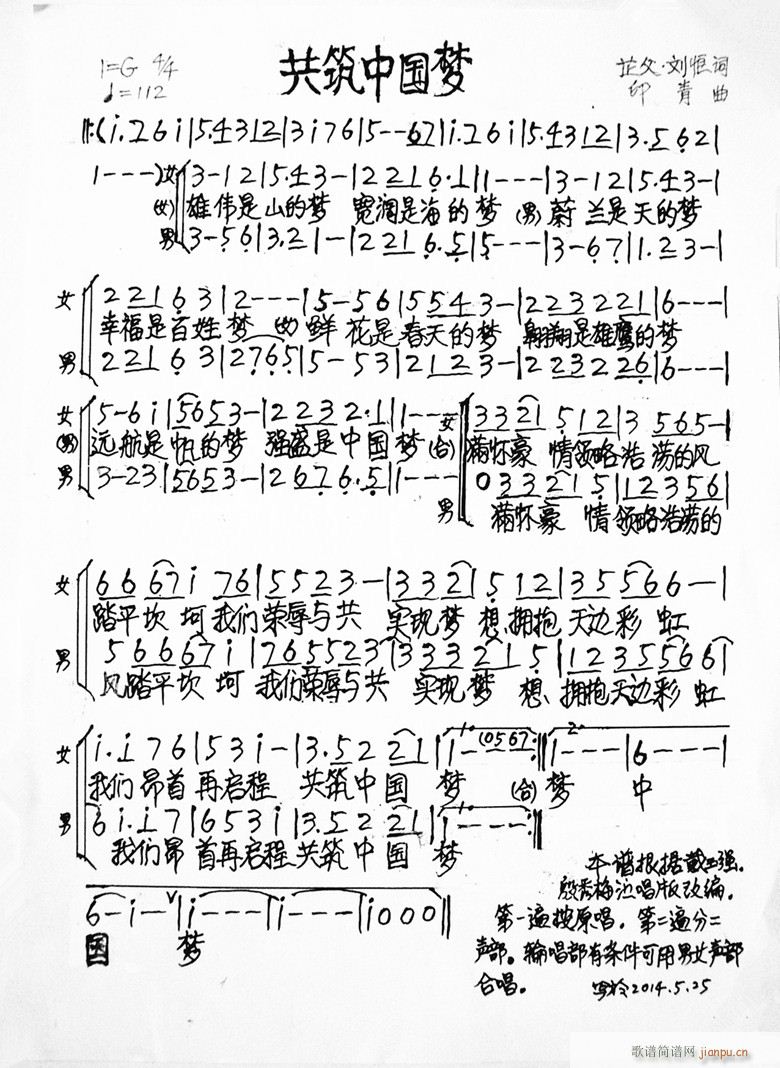 共筑中国梦
1=G 4/4
♩=112
芷父·刘恒词
印青曲
‖:(i.7 6 i|5.4 3 1 2|3 i 7 6|5--67|i.7 6 i|5.4 3 1 2|3.5 6 2|
1---)女 3-12|5.4 3-|2 2 1 6.1|1---|3-12|5.4 3-|
(女)雄伟是山的梦 宽阔是海的梦 (男)蔚兰是天的梦
男 3-56|3.2 1-|2 2 1 6.5|5---|3-67|1.2 3-|
女 2 2 1 6 3|2---|5-56|5 5 4 3-|2 2 3 2 2 1|6---|
幸福是百姓梦 (女)鲜花是春天的梦 翱翔是雄鹰的梦
男 2 2 1 6 3|2 7 6 5|5-53|2 1 2 3-|2 2 3 2 2 6|6---|
女 5-6 i|5 6 5 3-|2 2 3 2.1|1---| 女 3 3 2 1 5 1 2|3 5 6 5-|
(男)远航是帆的梦 强盛是中国梦 (合)满怀豪情领略浩荡的风
男 3-23|5 6 5 3-|2 6 7 6.5|1---| 男 0 3 3 2 1 5|1 2 3 5 6|
满怀豪情领略浩荡的
女 6 6 6 7 i 7 6|5 5 2 3-|3 3 2 1 5 1 2|3 5 5 6 6--|
踏平坎坷我们荣辱与共 实现梦想拥抱天边彩虹
男 5 6 6 6 7 i|7 6 5 5 2 3|3 3 3 2 1 5|1 2 3 5 5 6 6|
风踏平坎坷 我们荣辱与共 实现梦想、拥抱天边彩虹
女 i.i 7 6|5 3 i-|3.5 2 2 2 1|1.1-(0567:‖2.1---|6---|
我们昂首再启程 共筑中国梦 (合)梦 中
男 6 i.i 7|6 5 3 i|3.5 2 2 2 1|1.1---:‖
我们昂首再启程共筑中国梦
6-i-∨|i---|i---|i000‖
国 梦
本谱根据戴玉强。
殷秀梅边唱版改编。
第一遍按原唱。第二遍分二
声部。轮唱部有条件可用男女声部
合唱。
2014.5.25
歌谱简谱网 jianpu.cn